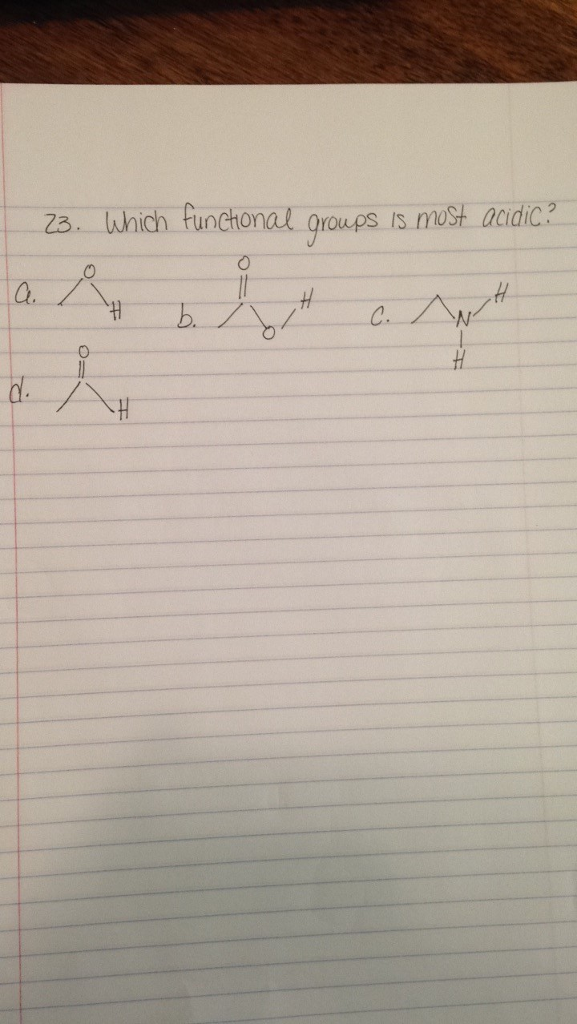 23. Which functional groups is most acidic?
a. O H b. O O H c. N H H
d. O H